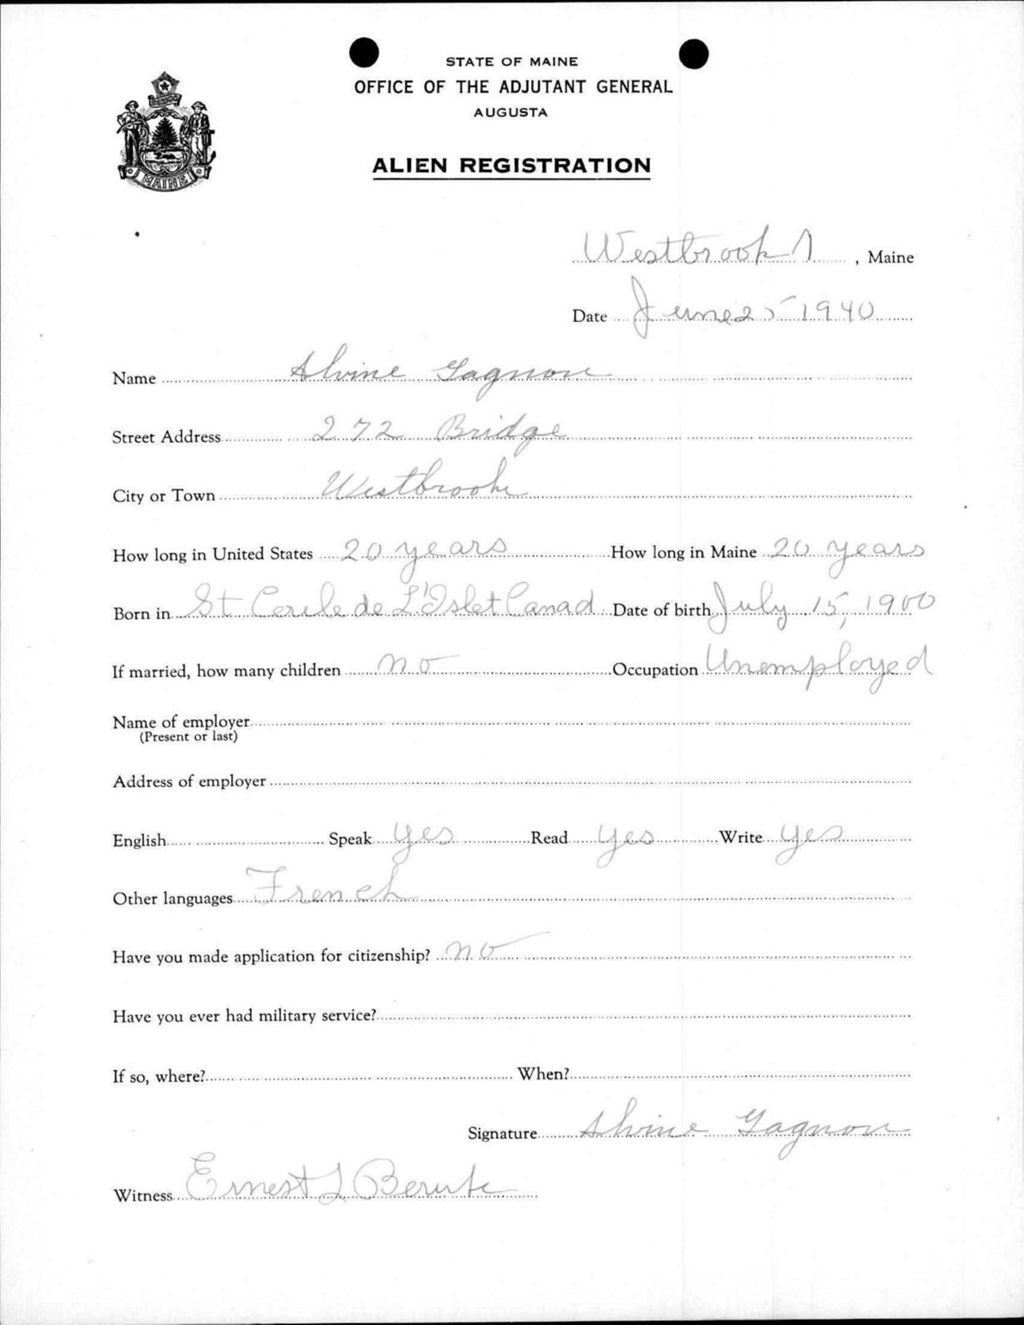 STATE OF MAINE
OFFICE OF THE ADJUTANT GENERAL
AUGUSTA
MAINE
ALIEN REGISTRATION
Westbrook, Maine
Date June 25 1940
Name Alvine Gagnon
Street Address 272 Bridge
City or Town Westbrook
How long in United States 20 years How long in Maine 20 years
Born in St Cerile de L'Islet Canad Date of birth July 15, 1900
If married, how many children no Occupation Unemployed
Name of employer
(Present or last)
Address of employer
English Speak yes Read yes Write yes
Other languages French
Have you made application for citizenship? no
Have you ever had military service?
If so, where? When?
Signature Alvine Gagnon
Witness Ernest L